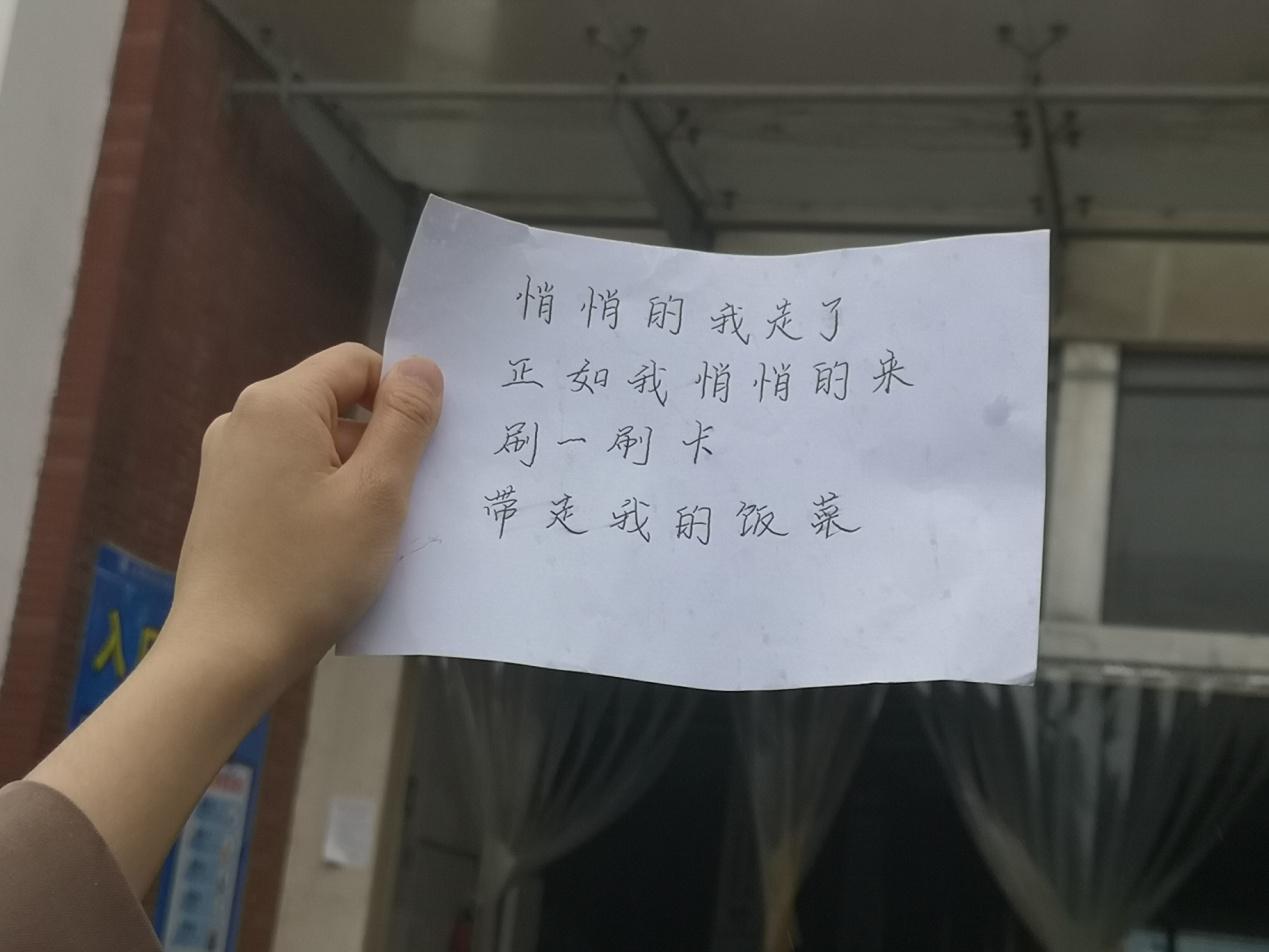 悄悄的我走了
正如我悄悄的来
刷一刷卡
带走我的饭菜
入